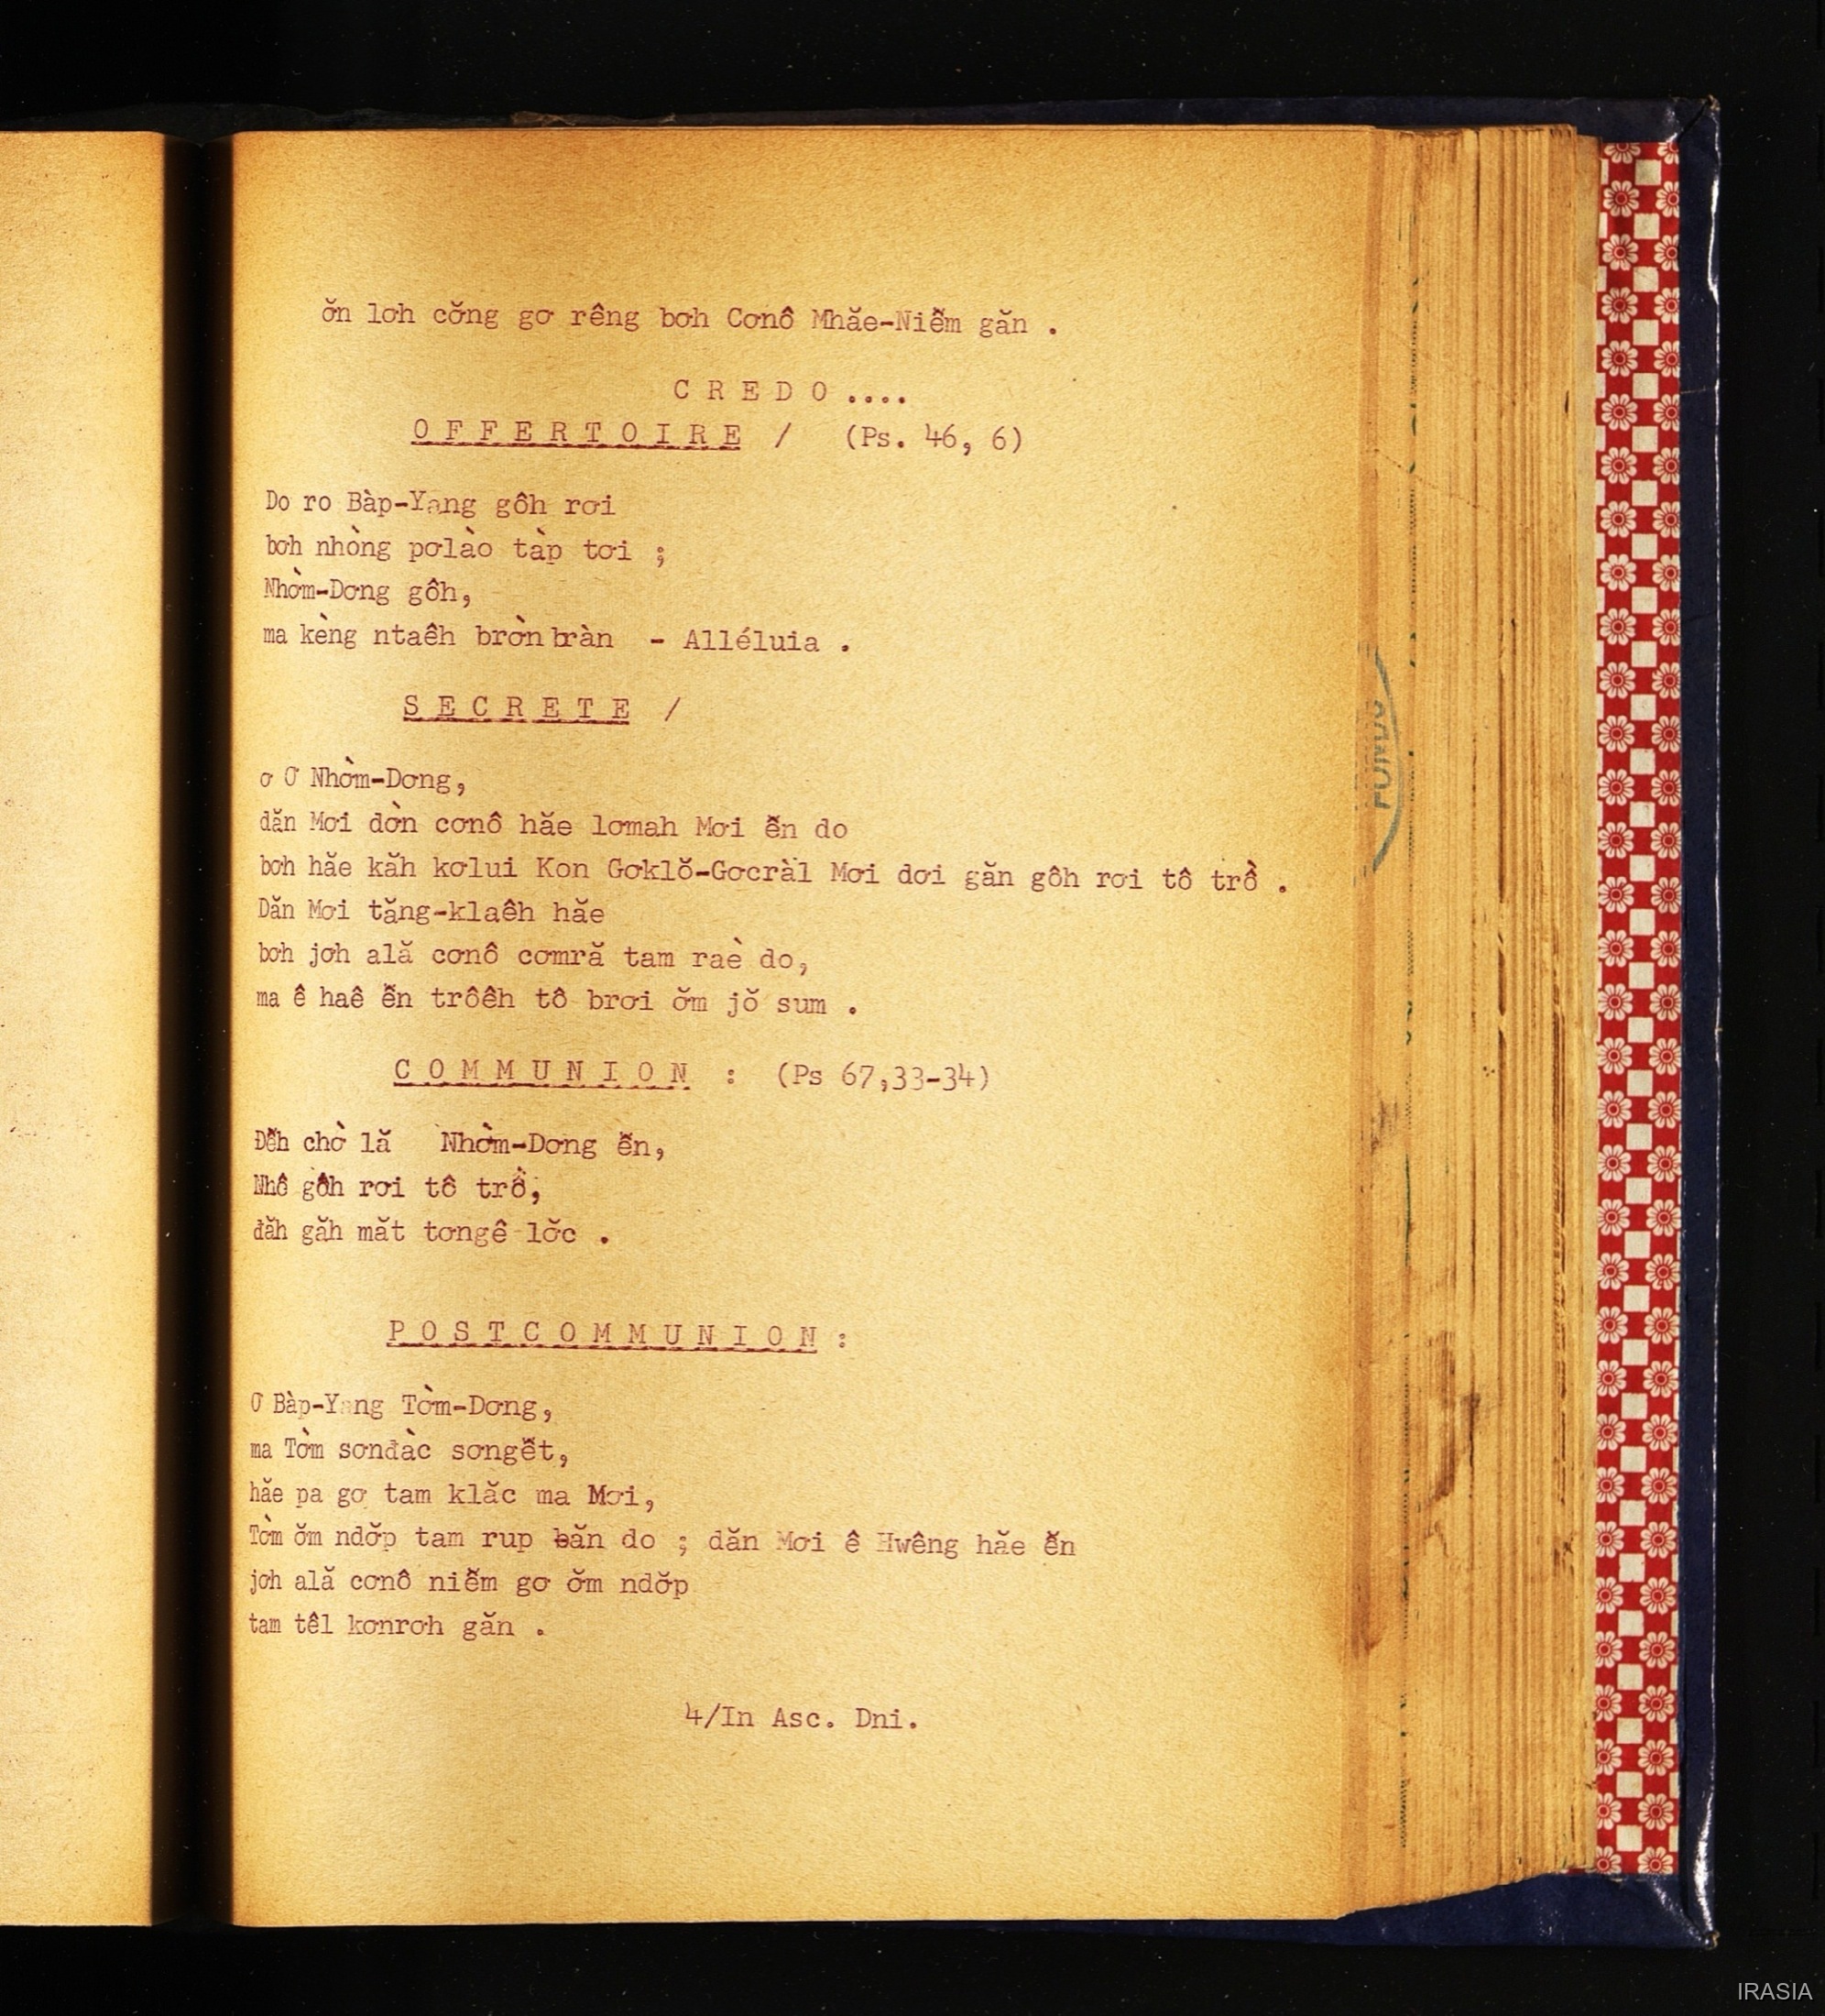 ơ̆n lơh cơ̆ng gơ rêng bơh Cơnô Mhăe-Niê̆m găn .
C R E D O ....
O F F E R T O I R E / (Ps. 46, 6)
Do ro Bàp-Yang gôh rơi
bơh nhòng pơlào tàp tơi ;
Nhờm-Dơng gôh,
ma kèng ntaêh brờn bràn - Alléluia .
S E C R E T E /
ơ Ơ Nhờm-Dơng,
dăn Mơi dờn cơnô hăe lơmah Mơi ê̆n do
bơh hăe kăh kơlui Kon Gơklŏ-Gơcràl Mơi dơi găn gôh rơi tô trồ .
Dăn Mơi tăng-klaêh hăe
bơh jơh ală cơnô cơmră tam raè do,
ma ê haê ê̆n trôêh tô brơi ơ̆m jŏ sum .
C O M M U N I O N : (Ps 67,33-34)
Đê̆h chờ lă Nhờm-Dơng ê̆n,
Nhê gôh rơi tô trồ,
đăh găh măt tơngê lơ̆c .
P O S T C O M M U N I O N :
Ơ Bàp-Yang Tờm-Dơng,
ma Tờm sơnđàc sơngê̆t,
hăe pa gơ tam klăc ma Mơi,
Tờm ơ̆m ndơ̆p tam rup băn do ; dăn Mơi ê Hwêng hăe ê̆n
jơh ală cơnô niê̆m gơ ơ̆m ndơ̆p
tam têl kơnrơh găn .
4/In Asc. Dni.
IRASIA